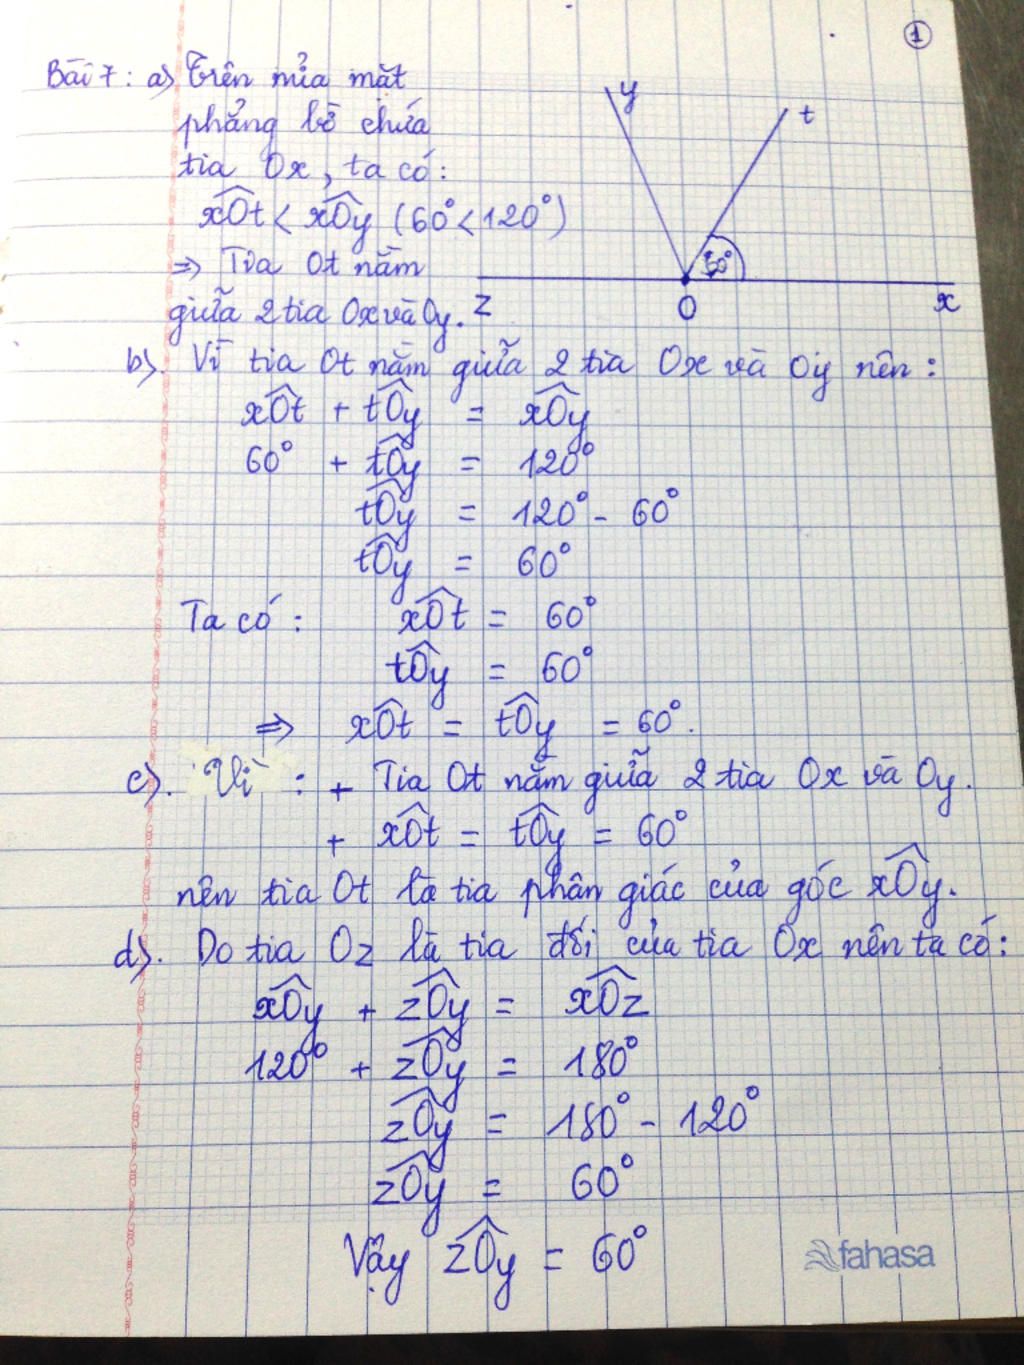 1
Bài 7: a) Trên nửa mặt
phẳng bờ chứa
tia Ox, ta có:
xOt < xOy (60° < 120°)
⇒ Tia Ot nằm
giữa 2 tia Ox và Oy.
y
t
60°
z
O
x
b). Vì tia Ot nằm giữa 2 tia Ox và Oy nên:
xOt + tOy = xOy
60° + tOy = 120°
tOy = 120° - 60°
tOy = 60°
Ta có: xOt = 60°
tOy = 60°
⇒ xOt = tOy = 60°.
c). Vì: + Tia Ot nằm giữa 2 tia Ox và Oy.
+ xOt = tOy = 60°
nên tia Ot là tia phân giác của góc xOy.
d). Do tia Oz là tia đối của tia Ox nên ta có:
xOy + zOy = xOz
120° + zOy = 180°
zOy = 180° - 120°
zOy = 60°
Vậy zOy = 60°
fahasa